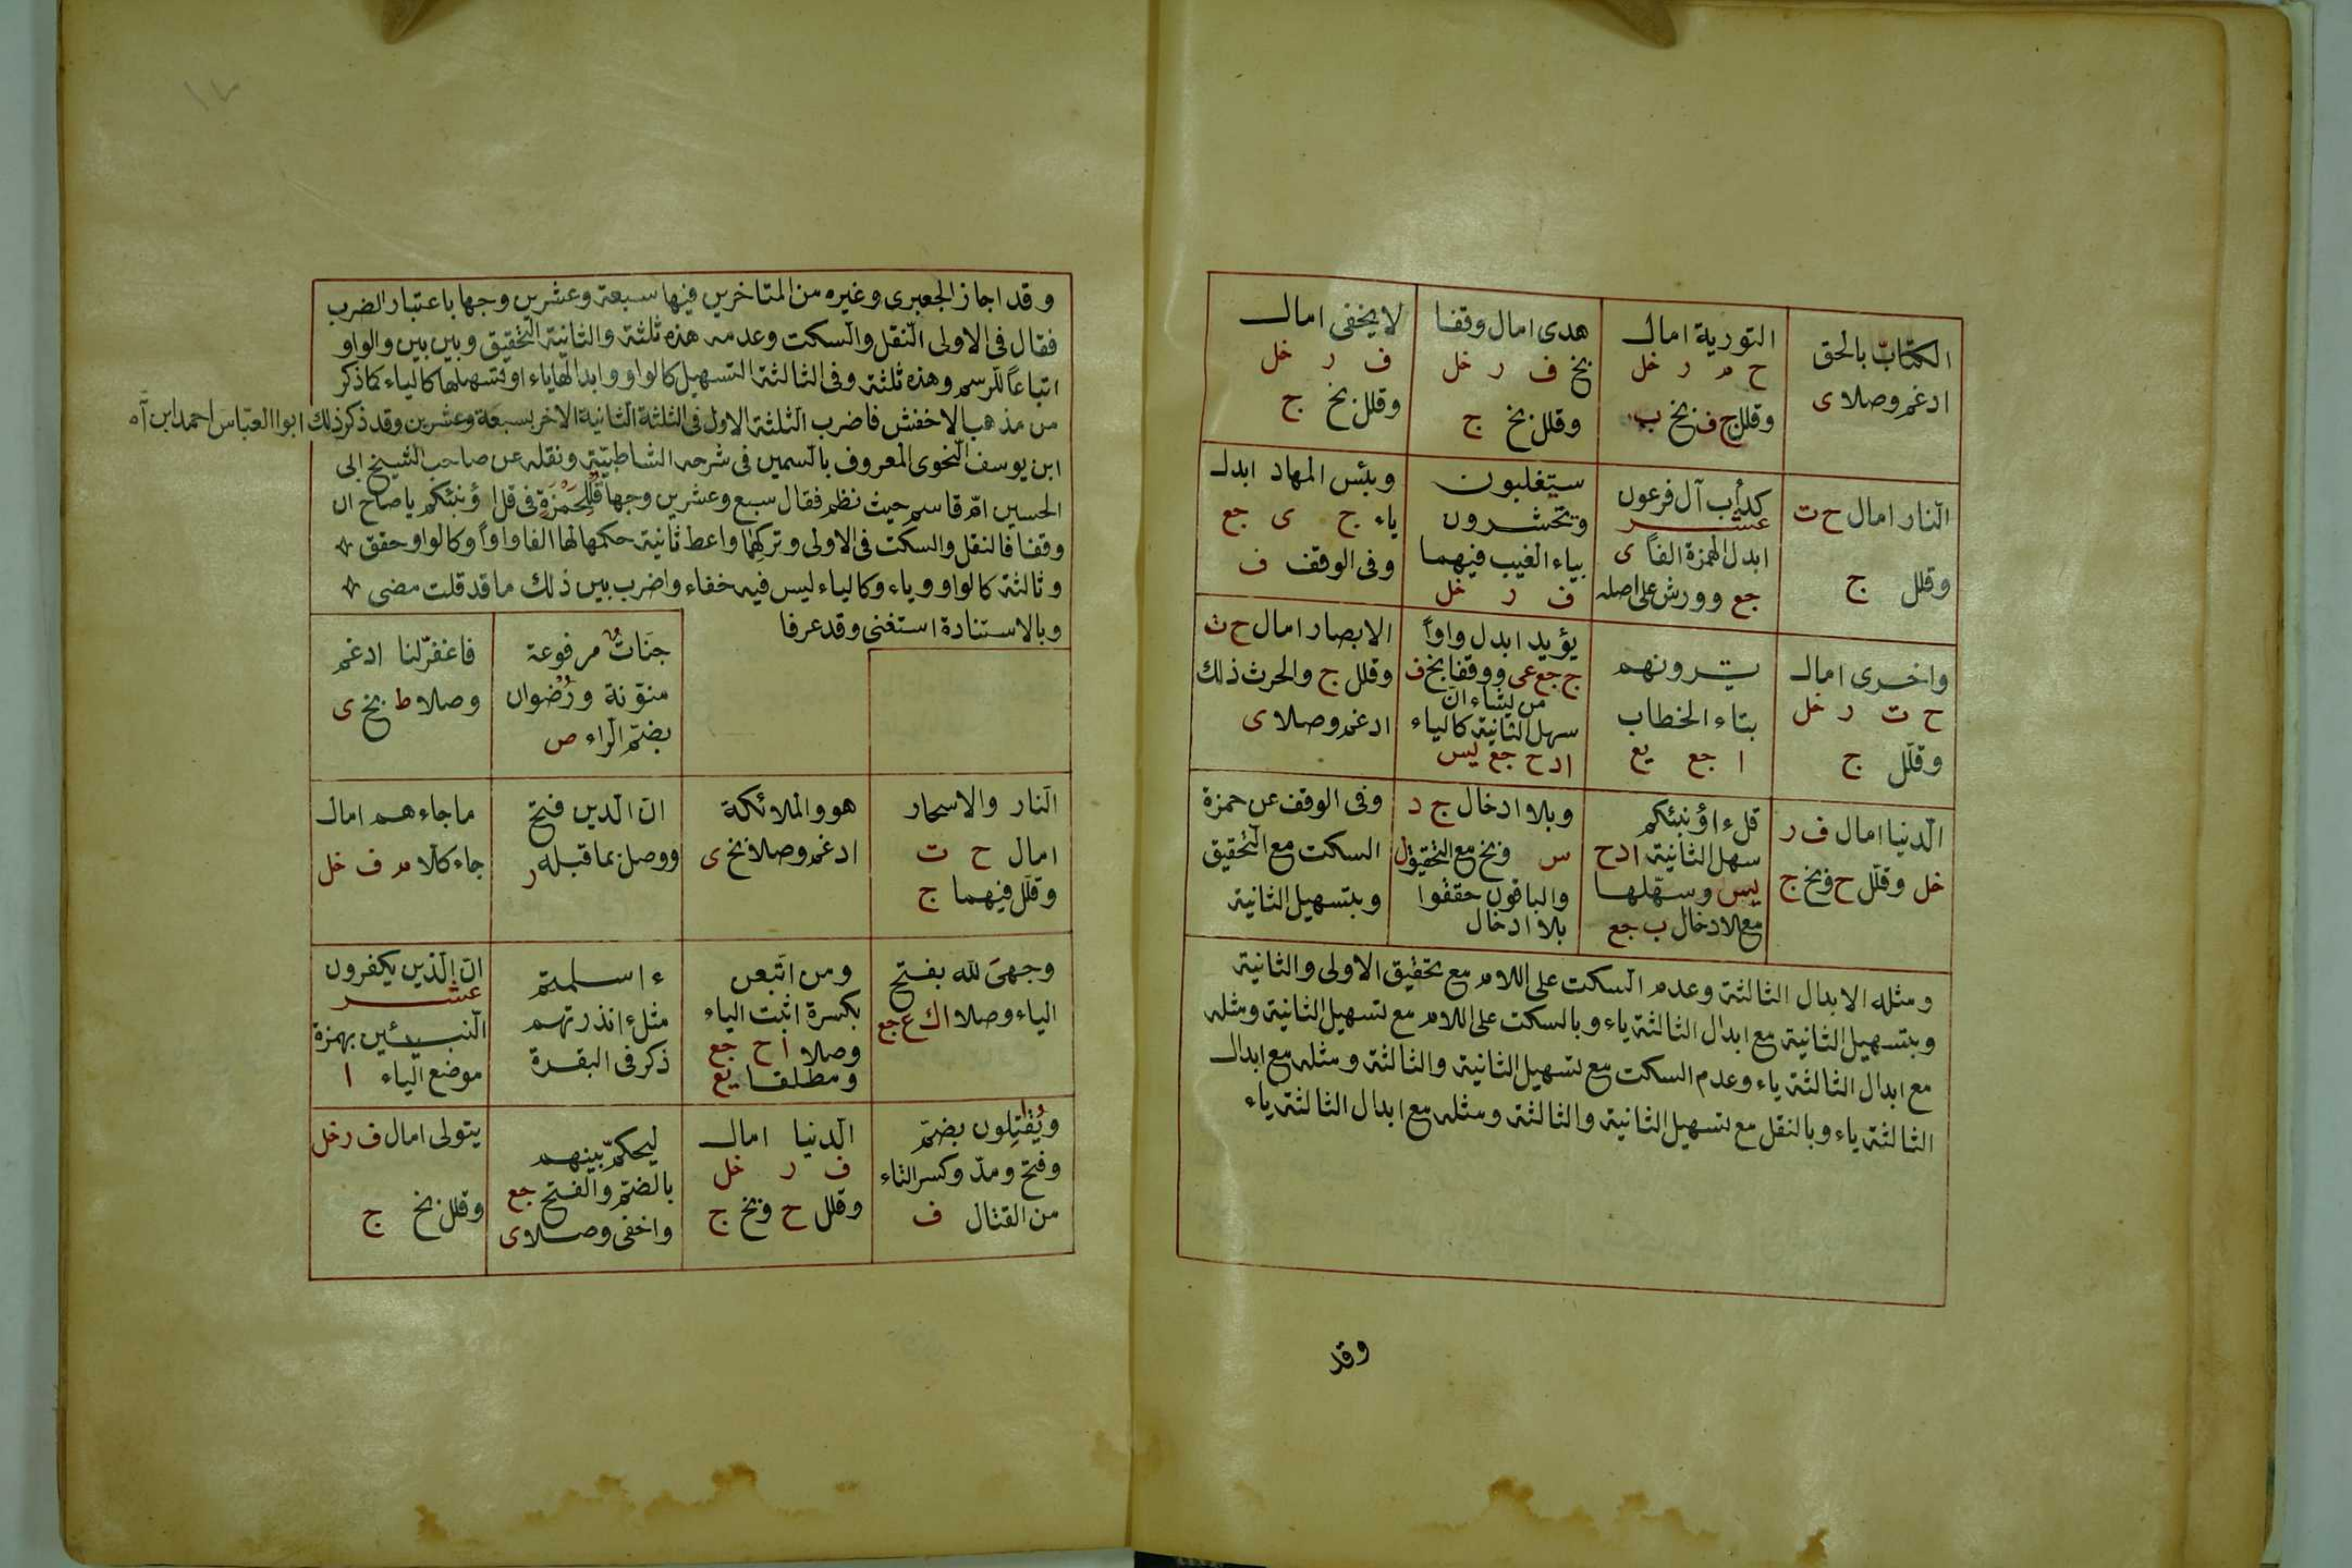 الكتاب بالحق
ادغم وصلا ى
التورية امال
ح م ر خل
وقلل ج ف بخ ب
هدى امال وقفا
بخ ف ر خل
وقلل بخ ج
لا يخفى امال
ف ر خل
وقلل بخ ج
النار امال ح ت
وقلل ج
كدأب آل فرعون
عشر
ابدل الهمزة الفاً ى
جع وورش على اصله
ستغلبون
وتحشرون
بياء الغيب فيهما
ف ر خل
وبئس المهاد ابدل
ياء ج ى جع
وفى الوقف ف
واخرى امال
ح ت ر خل
وقلّل ج
يرونهم
بتاء الخطاب
ا جع يع
يؤيد ابدل واواً
ج جع عى ووقفا بخ ف
من يشاء ان
سهل الثانية كالياء
ا د ح جع يس
الابصار امال ح ت
وقلل ج والحرث ذلك
ادغم وصلا ى
الدنيا امال ف ر
خل وقلّل ح وبخ ج
قل ءاؤنبئكم
سهل الثانية ا د ح
يس وسهّلها
مع الادخال ب جع
وبلا ادخال ج د
س وبخ مع التحقيق ل
والباقون حققوا
بلا ادخال
وفى الوقف عن حمزة
السكت مع التحقيق
وبتسهيل الثانية
ومثله الابدال الثالثة وعدم السكت على اللام مع تحقيق الاولى والثانية
وبتسهيل الثانية مع ابدال الثالثة ياء وبالسكت على اللام مع تسهيل الثانية ومثله
مع ابدال الثالثة ياء وعدم السكت مع تسهيل الثانية والثالثة ومثله مع ابدال
الثالثة ياء وبالنقل مع تسهيل الثانية والثالثة ومثله مع ابدال الثالثة ياء
وقد
وقد اجاز الجعبرى وغيره من المتاخرين فيها سبعة وعشرين وجها باعتبار الضرب
فقال فى الاولى النقل والسكت وعدمه هذه ثلثة والثانية التحقيق وبين بين والواو
اتباعاً للرسم وهذه ثلثة وفى الثالثة التسهيل كالواو وابدالها ياء او تسهيلها كالياء كما ذكر
من مذهب الاخفش فاضرب الثلثة الاول فى الثلثة الثانية الاخر بسبعة وعشرين وقد ذكر ذلك ابوا العباس احمد ابن
ابن يوسف النحوى المعروف بالسمين فى شرحه الشاطبيّة ونقله عن صاحب الشيخ ابى
الحسين امّ قاسم حيث نظم فقال سبع وعشرين وجها قل لحمزة فى قل اؤنبئكم يا صاح ان
وقفا فالنقل والسكت فى الاولى وتركهما واعط ثانية حكمها لها الفا واواً وكالواو حقق
وثالثة كالواو وياء وكالياء ليس فيه خفاء واضرب بين ذلك ما قد قلت مضى
وبالاستنادة استغنى وقد عرفا
جنات مرفوعة
منوّنة ورُضوان
بضمّ الراء ص
فاغفر لنا ادغم
وصلا ط بخ ى
النار والاسحار
امال ح ت
وقلّل فيهما ج
هو والملائكة
ادغم وصلا بخ ى
ان الدين فتح
ووصل بما قبله ر
ما جاءهم امال
جاء كلا م ف خل
وجهى لله بفتح
الياء وصلا ا ك ع جع
ومن اتبعن
بكسرة اثبت الياء
وصلا ا ح جع
ومطلقا يع
ءاسلمتم
مثل ءانذرتهم
ذكر فى البقرة
ان الذين يكفرون
عشر
النبيئين بهمزة
موضع الياء ا
ويُقاتِلون بضمّ
وفتح ومدّ وكسر التاء
من القتال ف
الدنيا امال
ف ر خل
وقلل ح وبخ ج
ليحكم بينهم
بالضمّ والفتح جع
واخفى وصلا ى
يتولى امال ف ر خل
وقلل بخ ج